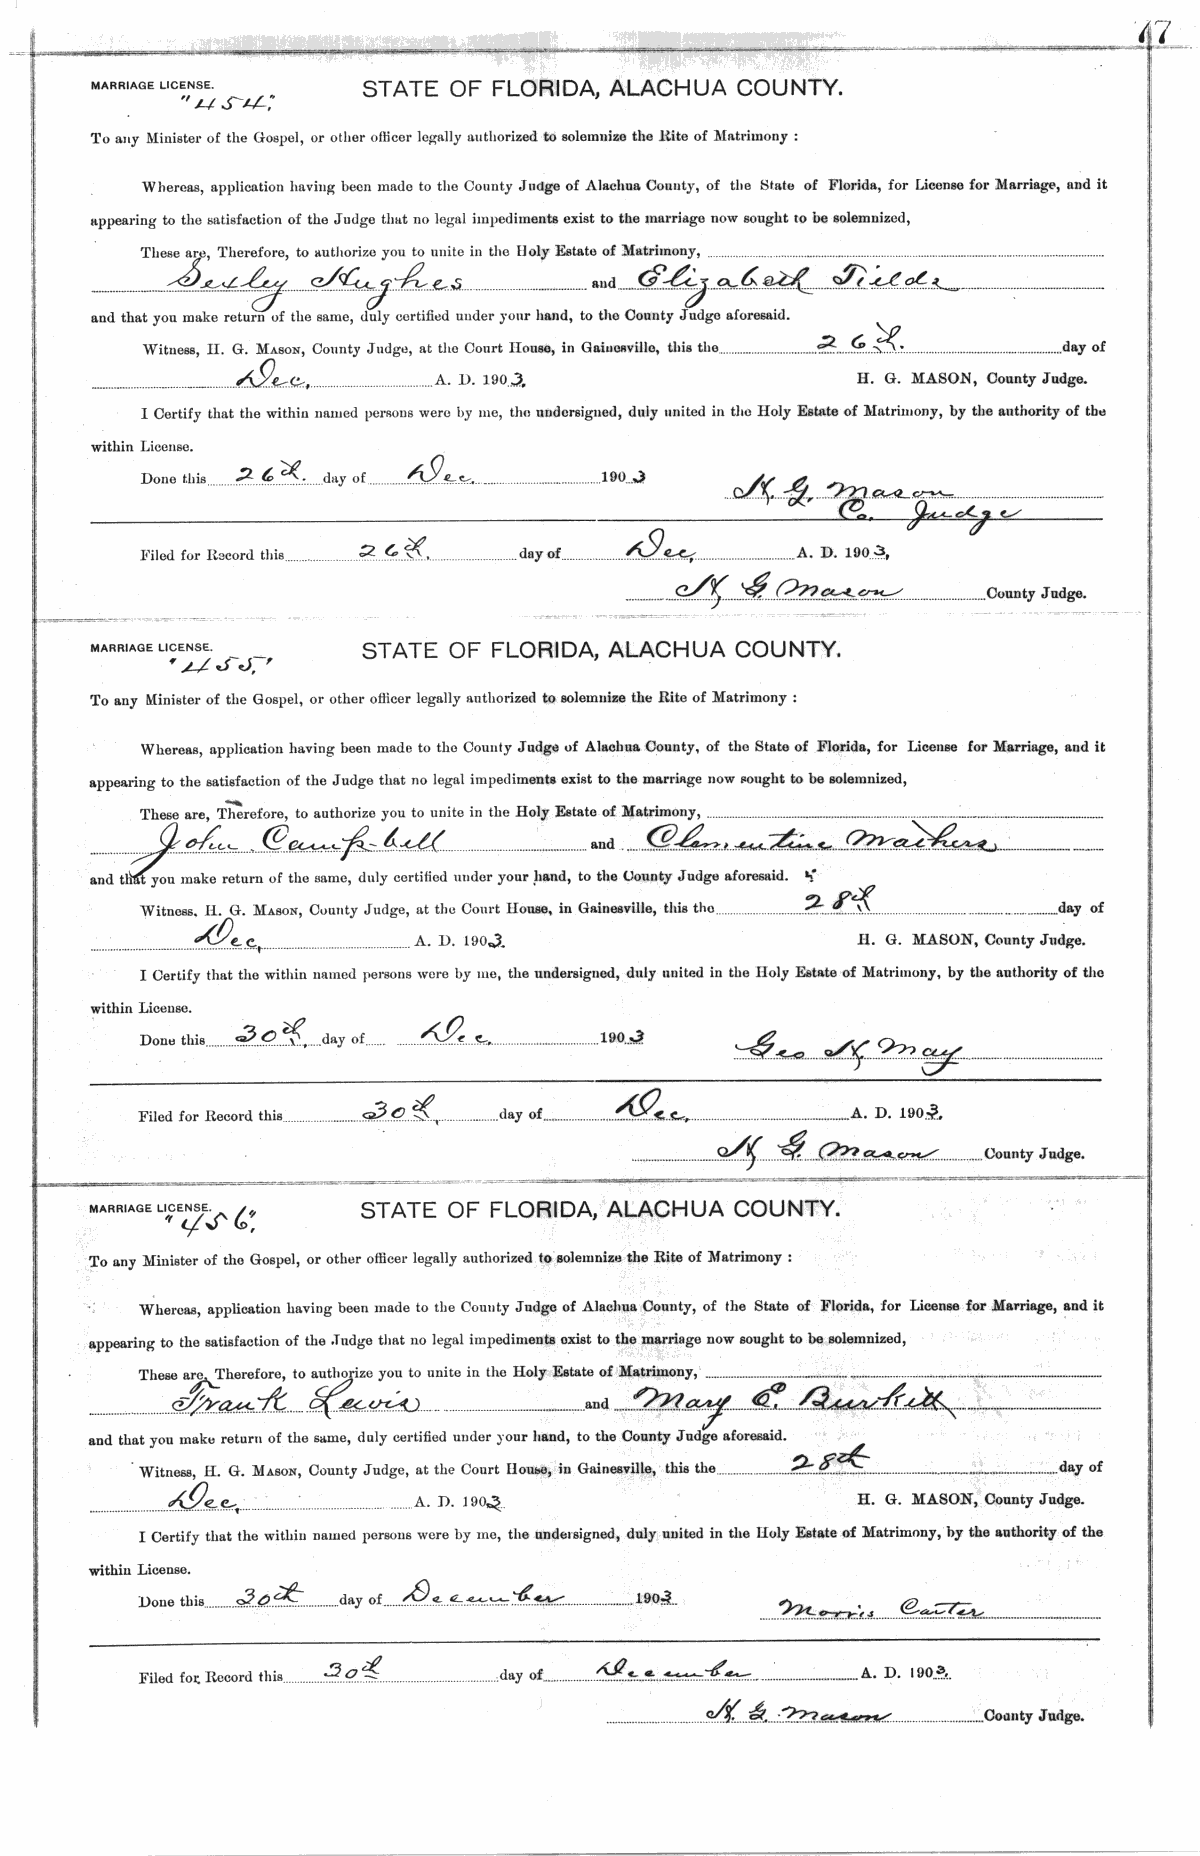 17
MARRIAGE LICENSE. STATE OF FLORIDA, ALACHUA COUNTY.
"454."
To any Minister of the Gospel, or other officer legally authorized to solemnize the Rite of Matrimony :
Whereas, application having been made to the County Judge of Alachua County, of the State of Florida, for License for Marriage, and it
appearing to the satisfaction of the Judge that no legal impediments exist to the marriage now sought to be solemnized,
These are, Therefore, to authorize you to unite in the Holy Estate of Matrimony,
Hughes and Elizabeth Fields
and that you make return of the same, duly certified under your hand, to the County Judge aforesaid.
Witness, H. G. MASON, County Judge, at the Court House, in Gainesville, this the 26th. day of
Dec. A. D. 1903. H. G. MASON, County Judge.
I Certify that the within named persons were by me, the undersigned, duly united in the Holy Estate of Matrimony, by the authority of the
within License.
Done this 26th. day of Dec. 1903 H. G. Mason
Co. Judge
Filed for Record this 26th. day of Dec, A. D. 1903,
H G. Mason County Judge.
MARRIAGE LICENSE. STATE OF FLORIDA, ALACHUA COUNTY.
"455."
To any Minister of the Gospel, or other officer legally authorized to solemnize the Rite of Matrimony :
Whereas, application having been made to the County Judge of Alachua County, of the State of Florida, for License for Marriage, and it
appearing to the satisfaction of the Judge that no legal impediments exist to the marriage now sought to be solemnized,
These are, Therefore, to authorize you to unite in the Holy Estate of Matrimony,
John Campbell and Clementine Mathers
and that you make return of the same, duly certified under your hand, to the County Judge aforesaid.
Witness, H. G. MASON, County Judge, at the Court House, in Gainesville, this the 28th day of
Dec, A. D. 1903. H. G. MASON, County Judge.
I Certify that the within named persons were by me, the undersigned, duly united in the Holy Estate of Matrimony, by the authority of the
within License.
Done this 30th, day of Dec. 1903 Geo H. May
Filed for Record this 30th, day of Dec, A. D. 1903.
H G. Mason County Judge.
MARRIAGE LICENSE. STATE OF FLORIDA, ALACHUA COUNTY.
"456."
To any Minister of the Gospel, or other officer legally authorized to solemnize the Rite of Matrimony :
Whereas, application having been made to the County Judge of Alachua County, of the State of Florida, for License for Marriage, and it
appearing to the satisfaction of the Judge that no legal impediments exist to the marriage now sought to be solemnized,
These are, Therefore, to authorize you to unite in the Holy Estate of Matrimony,
Frank Lewis and Mary E. Burkitt
and that you make return of the same, duly certified under your hand, to the County Judge aforesaid.
Witness, H. G. MASON, County Judge, at the Court House, in Gainesville, this the 28th day of
Dec, A. D. 1903 H. G. MASON, County Judge.
I Certify that the within named persons were by me, the undersigned, duly united in the Holy Estate of Matrimony, by the authority of the
within License.
Done this 30th day of December 1903 Morris Carter
Filed for Record this 30th day of December A. D. 1903.
H. G. Mason County Judge.